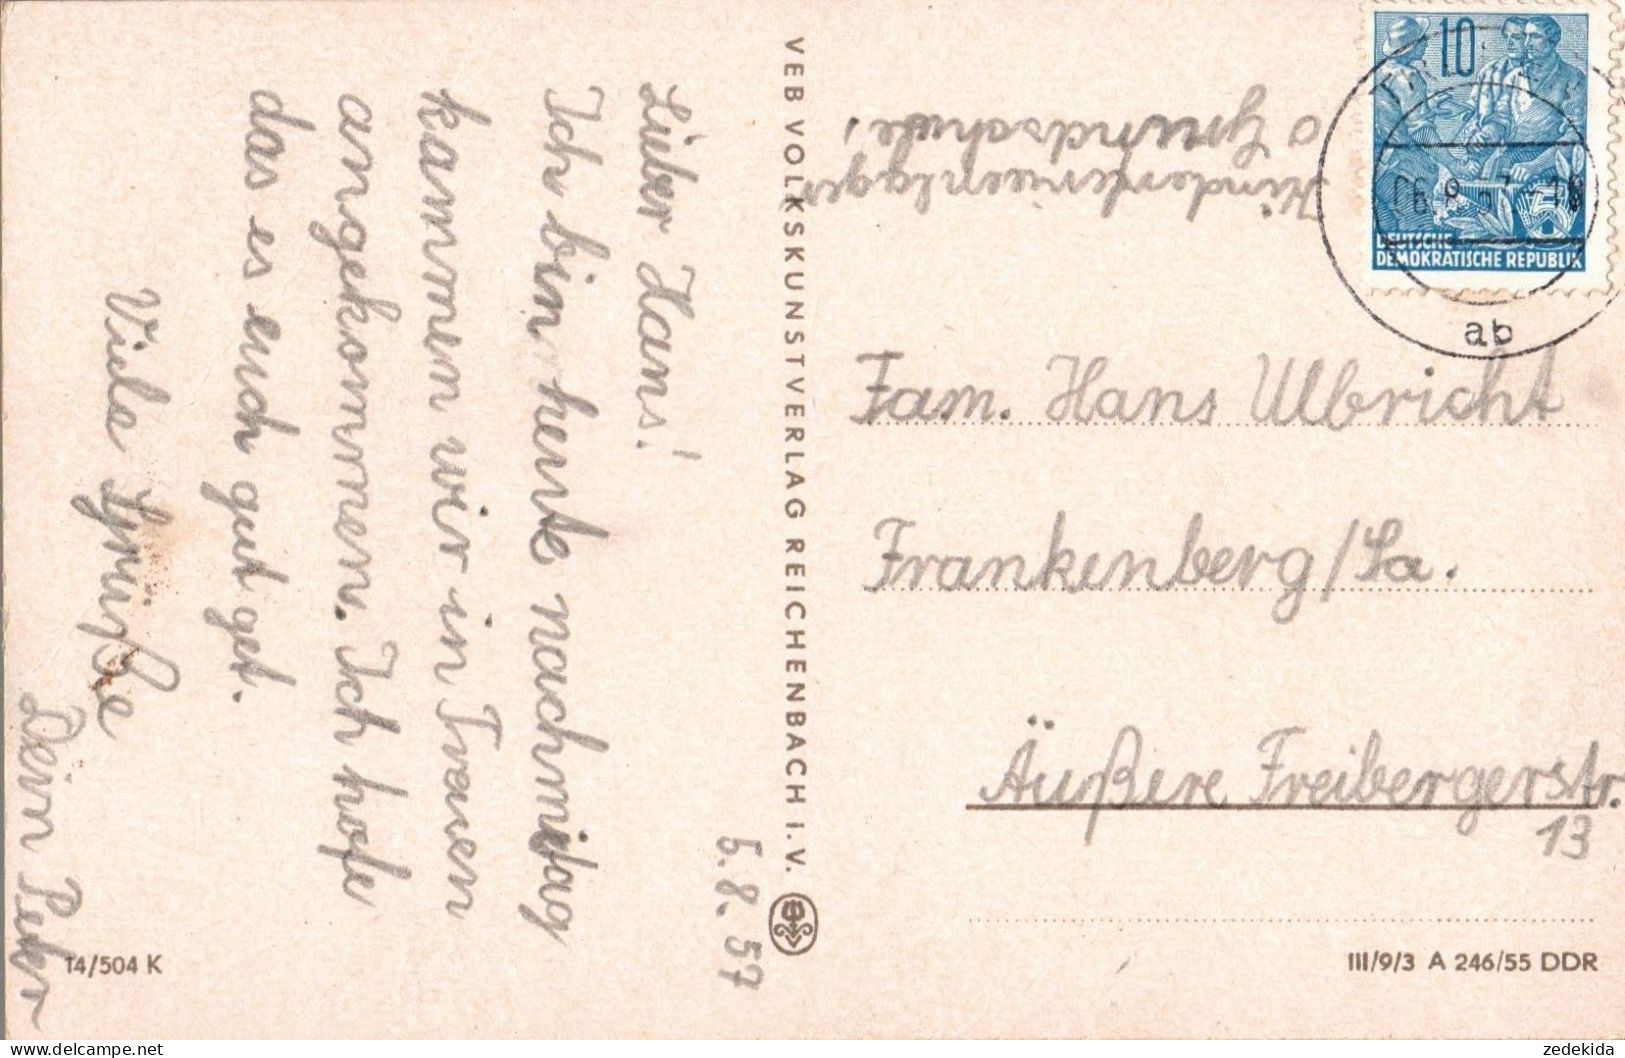 5.8.57
Lieber Hans!
Ich bin heute nachmittag
kammen wir in Trasen
angekommen. Ich hofe
das es euch gut get.
Viele Grüße
Dein Peter
T4/504 K
VEB VOLKSKUNSTVERLAG REICHENBACH I. V.
Kinderferienlager
Grundschule,
10
DEUTSCHE
DEMOKRATISCHE REPUBLIK
ab
Fam. Hans Ulbricht
Frankenberg/Sa.
Äußere Freibergerstr.
13
III/9/3 A 246/55 DDR
zedekida